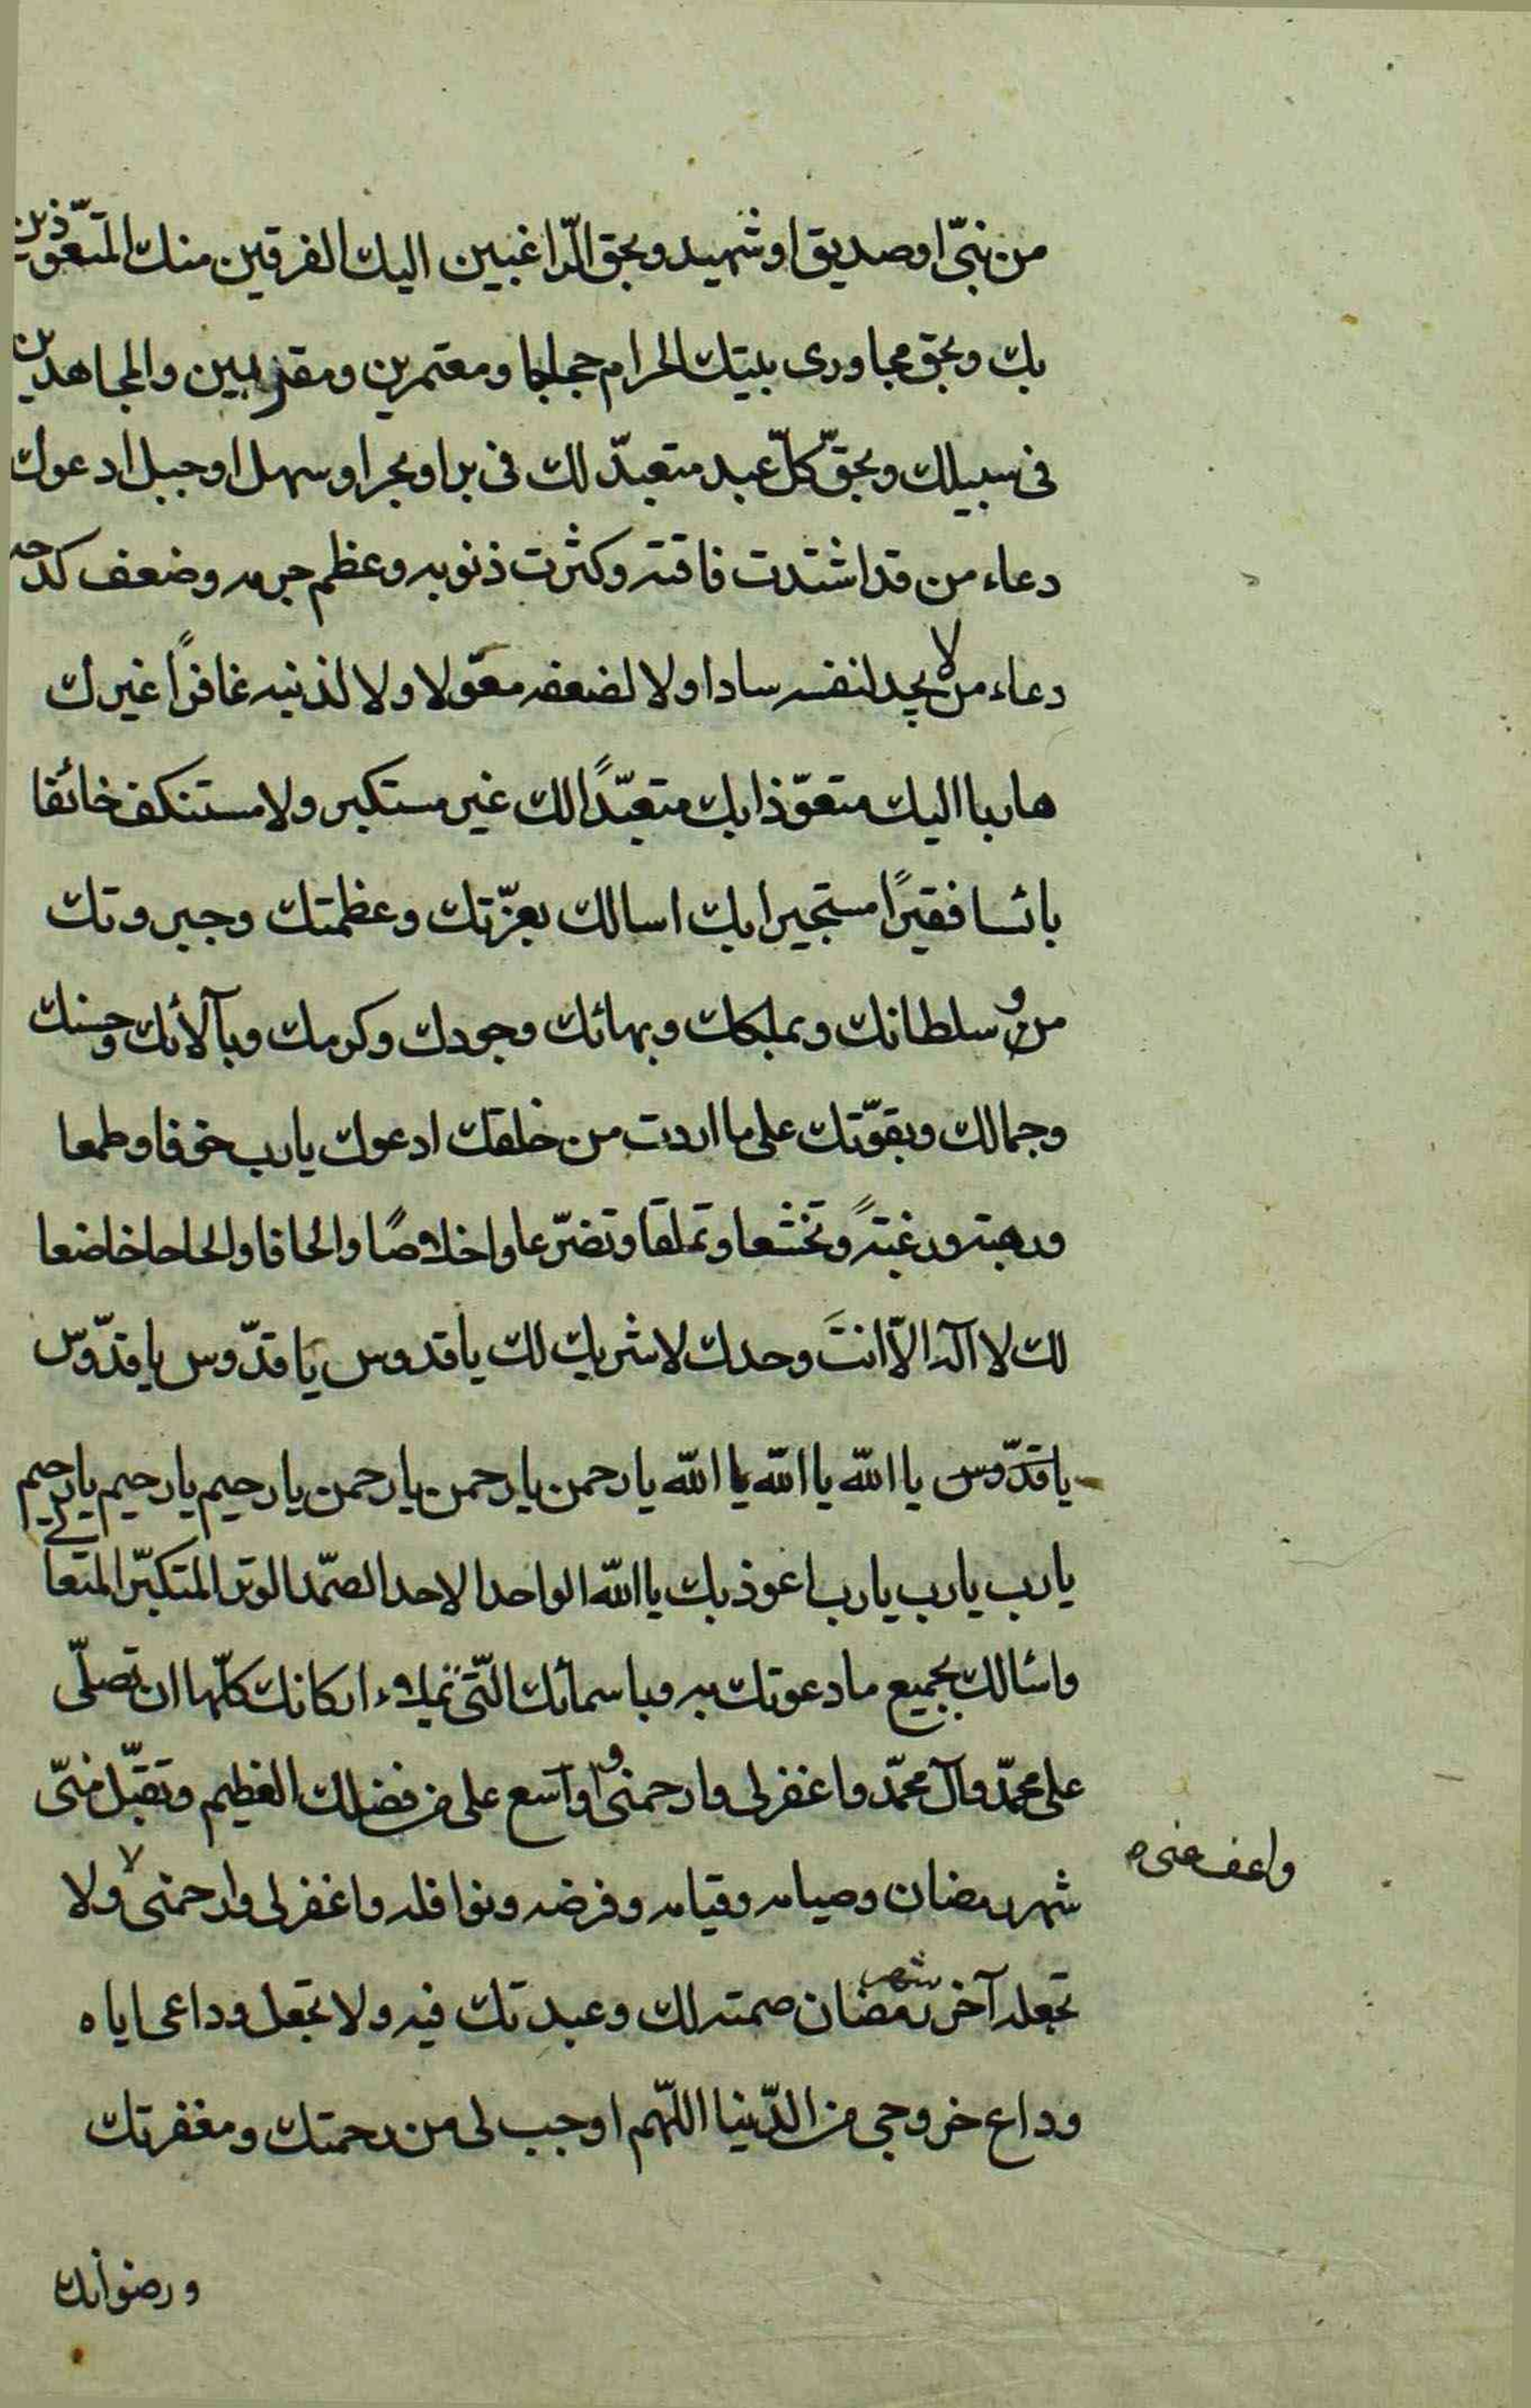 من نبىّ او صديق او شهيد وبحق الرّاغبين اليك الفرقين منك المتعوّذين
بك وبحق مجاورى بيتك الحرام حجاجا ومعتمرين ومقربين والمجاهدين
فى سبيلك وبحقّ كلّ عبد متعبدّ لك فى بر او بحر او سهل او جبل ادعوك
دعاء من قد اشتدت فاقته وكثرت ذنوبه وعظم جرمه وضعف كدحه
دعاء من لا يجد لنفسه سادا ولا لضعفه معوّلا ولا لذنبه غافرًا غيرك
هاربا اليك متعوّذا بك متعبّدًا لك غير مستكبر ولا مستنكف خائفا
بائسا فقيرًا مستجيرا بك اسالك بعزّتك وعظمتك وجبروتك
من و سلطانك وبملكك وبهائك وجودك وكرمك وبآلائك وحسنك
وجمالك وبقوّتك على ما اردت من خلقك ادعوك يارب خوفا وطمعا
ورهبة ورغبةً وتخشعا وتملقا وتضرّعا واخلاصًا والحافا والحاحا خاضعا
لك لا اله الاّ انتَ وحدك لا شريك لك يا قدوس يا قدّوس يا قدّوس
يا قدّوس يا الله يا الله يا الله يا رحمن يا رحمن يا رحمن يا رحيم يا رحيم يا رحيم
يا رب يا رب يا رب اعوذ بك يا الله الواحد الاحد الصّمد الوتر المتكبّر المتعالى
واسالك بجميع ما دعوتك به وباسمائك الّتى تملاء اركانك كلّها ان تصلّى
على محمّد وآل محمّد واغفر لى وارحمنى و اوسع على من فضلك العظيم وتقبّل منىّ
واعف عنى ه
شهر رمضان وصيامه وقيامه وفرضه ونوافله واغفر لى وارحمنى ولا
تجعله آخر شهر رمضان صمته لك وعبدتك فيه ولا تجعل وداعى اياه
وداع خروجى من الدّنيا اللّهم اوجب لى من رحمتك ومغفرتك
ورضوانك